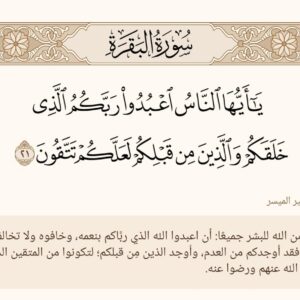 سُورَةُ البَقَرَةِ
يَـٰٓأَيُّهَا ٱلنَّاسُ ٱعۡبُدُواْ رَبَّكُمُ ٱلَّذِي
خَلَقَكُمۡ وَٱلَّذِينَ مِن قَبۡلِكُمۡ لَعَلَّكُمۡ تَتَّقُونَ ٢١
ير الميسر
من الله للبشر جميعًا: أن اعبدوا الله الذي ربَّاكم بنعمه، وخافوه ولا تخالف
فقد أوجدكم من العدم، وأوجد الذين مِن قبلكم؛ لتكونوا من المتقين ال
الله عنهم ورضوا عنه.